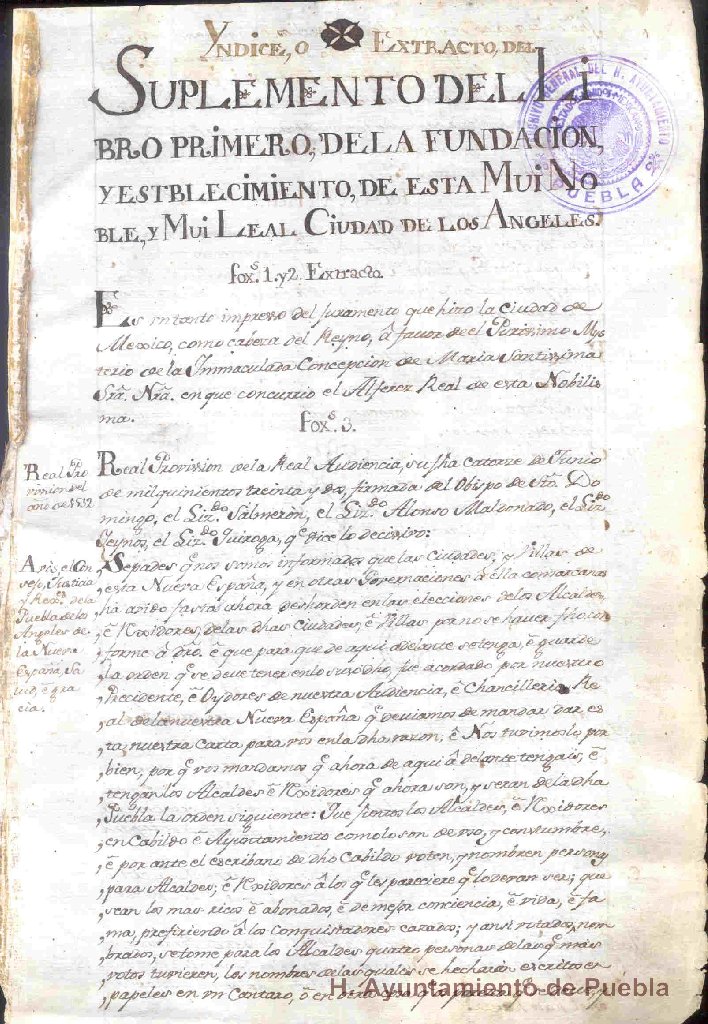 YNDICE, O EXTRACTO, DEL
SUPLEMENTO DEL LI
BRO PRIMERO, DE LA FUNDACION,
Y ESTBLECIMIENTO, DE ESTA MUI NO
BLE, Y MUI LEAL CIUDAD DE LOS ANGELES.
fox.s 1. y 2. Extracto.
Es un tanto impreso del juramento que hizo la Ciudad de
Mexico, como caveza del Reyno, â favor de el Purissimo Mys
terio de la Immaculada Concepcion de Maria Santissima
Srã. Nrã. en que concurrio el Alferez Real de esta Nobilis
ma.
fox.s 3.
Real Pro
vission del
año de 1532.
Real Provission de la Real Audiencia, su fha catorze de Junio
de mil quinientos treinta y dos, firmada del Obispo de Sto. Do
mingo, el Liz.do Salmeron, el Liz.do Alonso Maldonado, el Liz.do
Zeynos, el Liz.do Quiroga, q.e dice lo decissivo:
A vos, el Con
sejo, Justicia
y Rex.s de la
Puebla de los
Angeles de
la Nueva
España, Sa
lud, è gra
cia.
Sepades q.e nos somos informados que las Ciudades, y Villas de
esta Nueva España, y en otras Governaciones â ella comarcanas
ha avido fasta ahora deshorden en las elecciones de los Alcaldes,
è Rexidores, de las dhas Ciudades, è Villas por no se haver fho con
forme â dro. è que para que de aqui adelante se tenga, è guarde
la orden q.e se deve tener en lo susodho, fue acordado por nuestro
Precidente, è Oydores de nuestra Audiencia, è Chancilleria Re
al de la nuestra Nueva España q.e deviamos de mandar dar es
ta nuestra Carta para vos en la dha razon; è Nos tuvimoslo por
bien, por q.e vos mandamos q.e ahora de aqui â delante tengais, è
tengan los Alcaldes è Rexidores q.e ahora son, y seran de la dha
Puebla la orden siguiente: Que juntos los Alcaldes, è Rexidores
en Cabildo è Ayuntamiento como lo son de uso, y constumbre,
è por ante el escribano de dho Cabildo voten, y nombren personas
para Alcaldes, è Rexidores â los q.e les pareciere q.e lo deven ser; que
sean los mas ricos è abonados, è de mejor conciencia, è vida, è fa
ma, prefiriendo â los conquistadores casados; y ansi votados, nom
brados, se tome para los Alcaldes quatro personas de las q.e mas
votos tuvieren, los nombres de las quales se hecharàn escritos en
papeles en un Cantaro, ò en otra
H. Ayuntamiento de Puebla
DEL H. AYUNTAMIENTO
PUEBLA